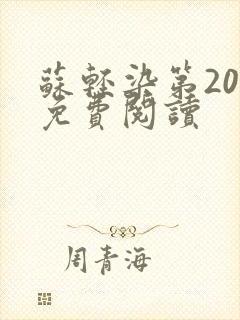 蘇輕染第20
免費閱讀
周青海